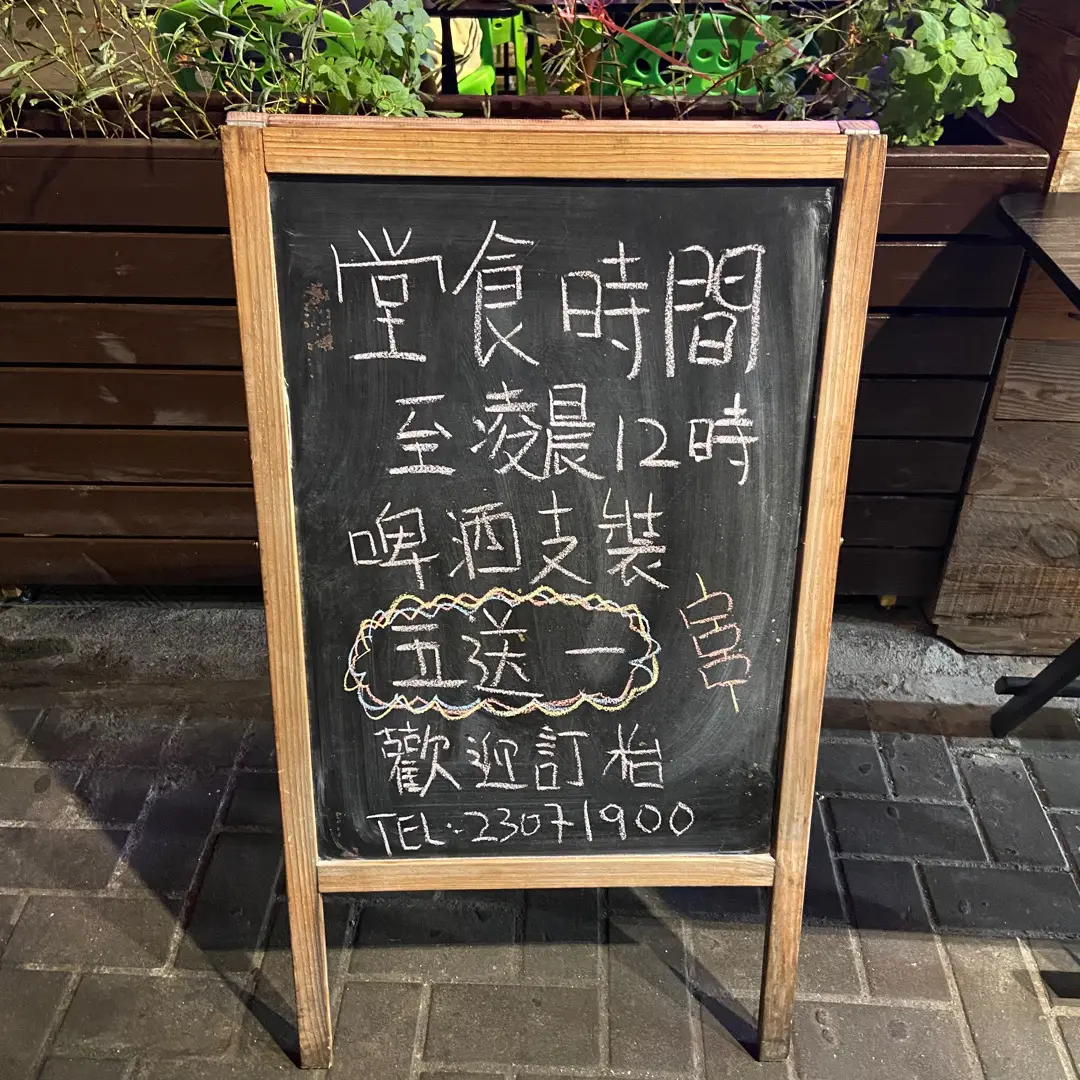 堂食時間
至凌晨12時
啤酒支裝
五送一
歡迎訂枱
TEL:23071900